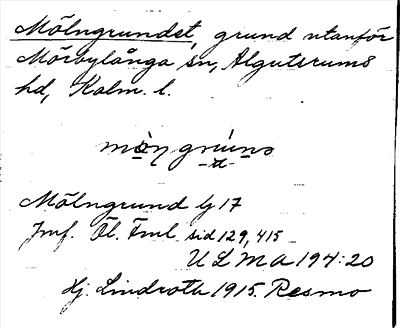 Mölngrundet, grund utanför
Mörbylånga sn, Algutsrums
hd, Kalm. l.
Mölngrund lg 17
Jmf. Öl. Fml. sid 129, 415
U L M A 194:20
Hj. Lindroth 1915. Resmo